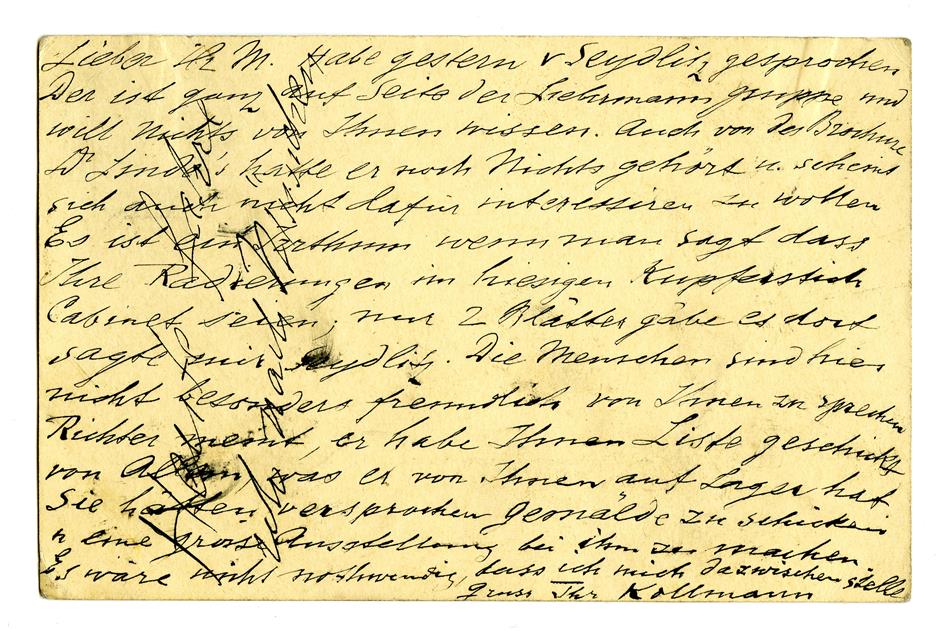 Lieber Hr M. Habe gestern v Seydlitz gesprochen
Der ist ganz auf Seite der Liebermann gruppe und
will Nichts von Ihnen wissen. Auch von der Brochure
Dr Linde's hatte er noch Nichts gehört u. scheint
sich auch nicht dafür interessiren zu wollen
Es ist ein Irrthum wenn man sagt dass
Ihre Radierungen im hiesigen Kupferstich
Cabinet seien, nur 2 Blätter gäbe es dort
sagte mir Seydlitz. Die Menschen sind hier
nicht besonders freundlich von Ihnen zu sprechen
Richter meint, er habe Ihnen Liste geschickt
von Allem, was er von Ihnen auf Lager hat
Sie hätten versprochen Gemälde zu schicken
u eine grosse Ausstellung bei ihm zu machen
Es wäre nicht nothwendig, dass ich mich dazwischen stelle
Gruss Ihr Kollmann
nach